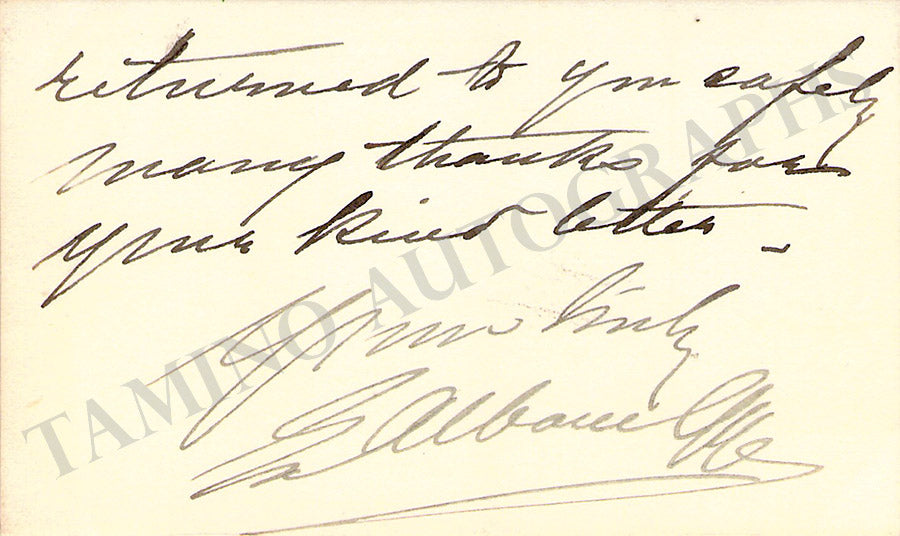 returned to you safely
many thanks for
your kind letter –
Yours
E Albani Gye
TAMINO AUTOGRAPHS